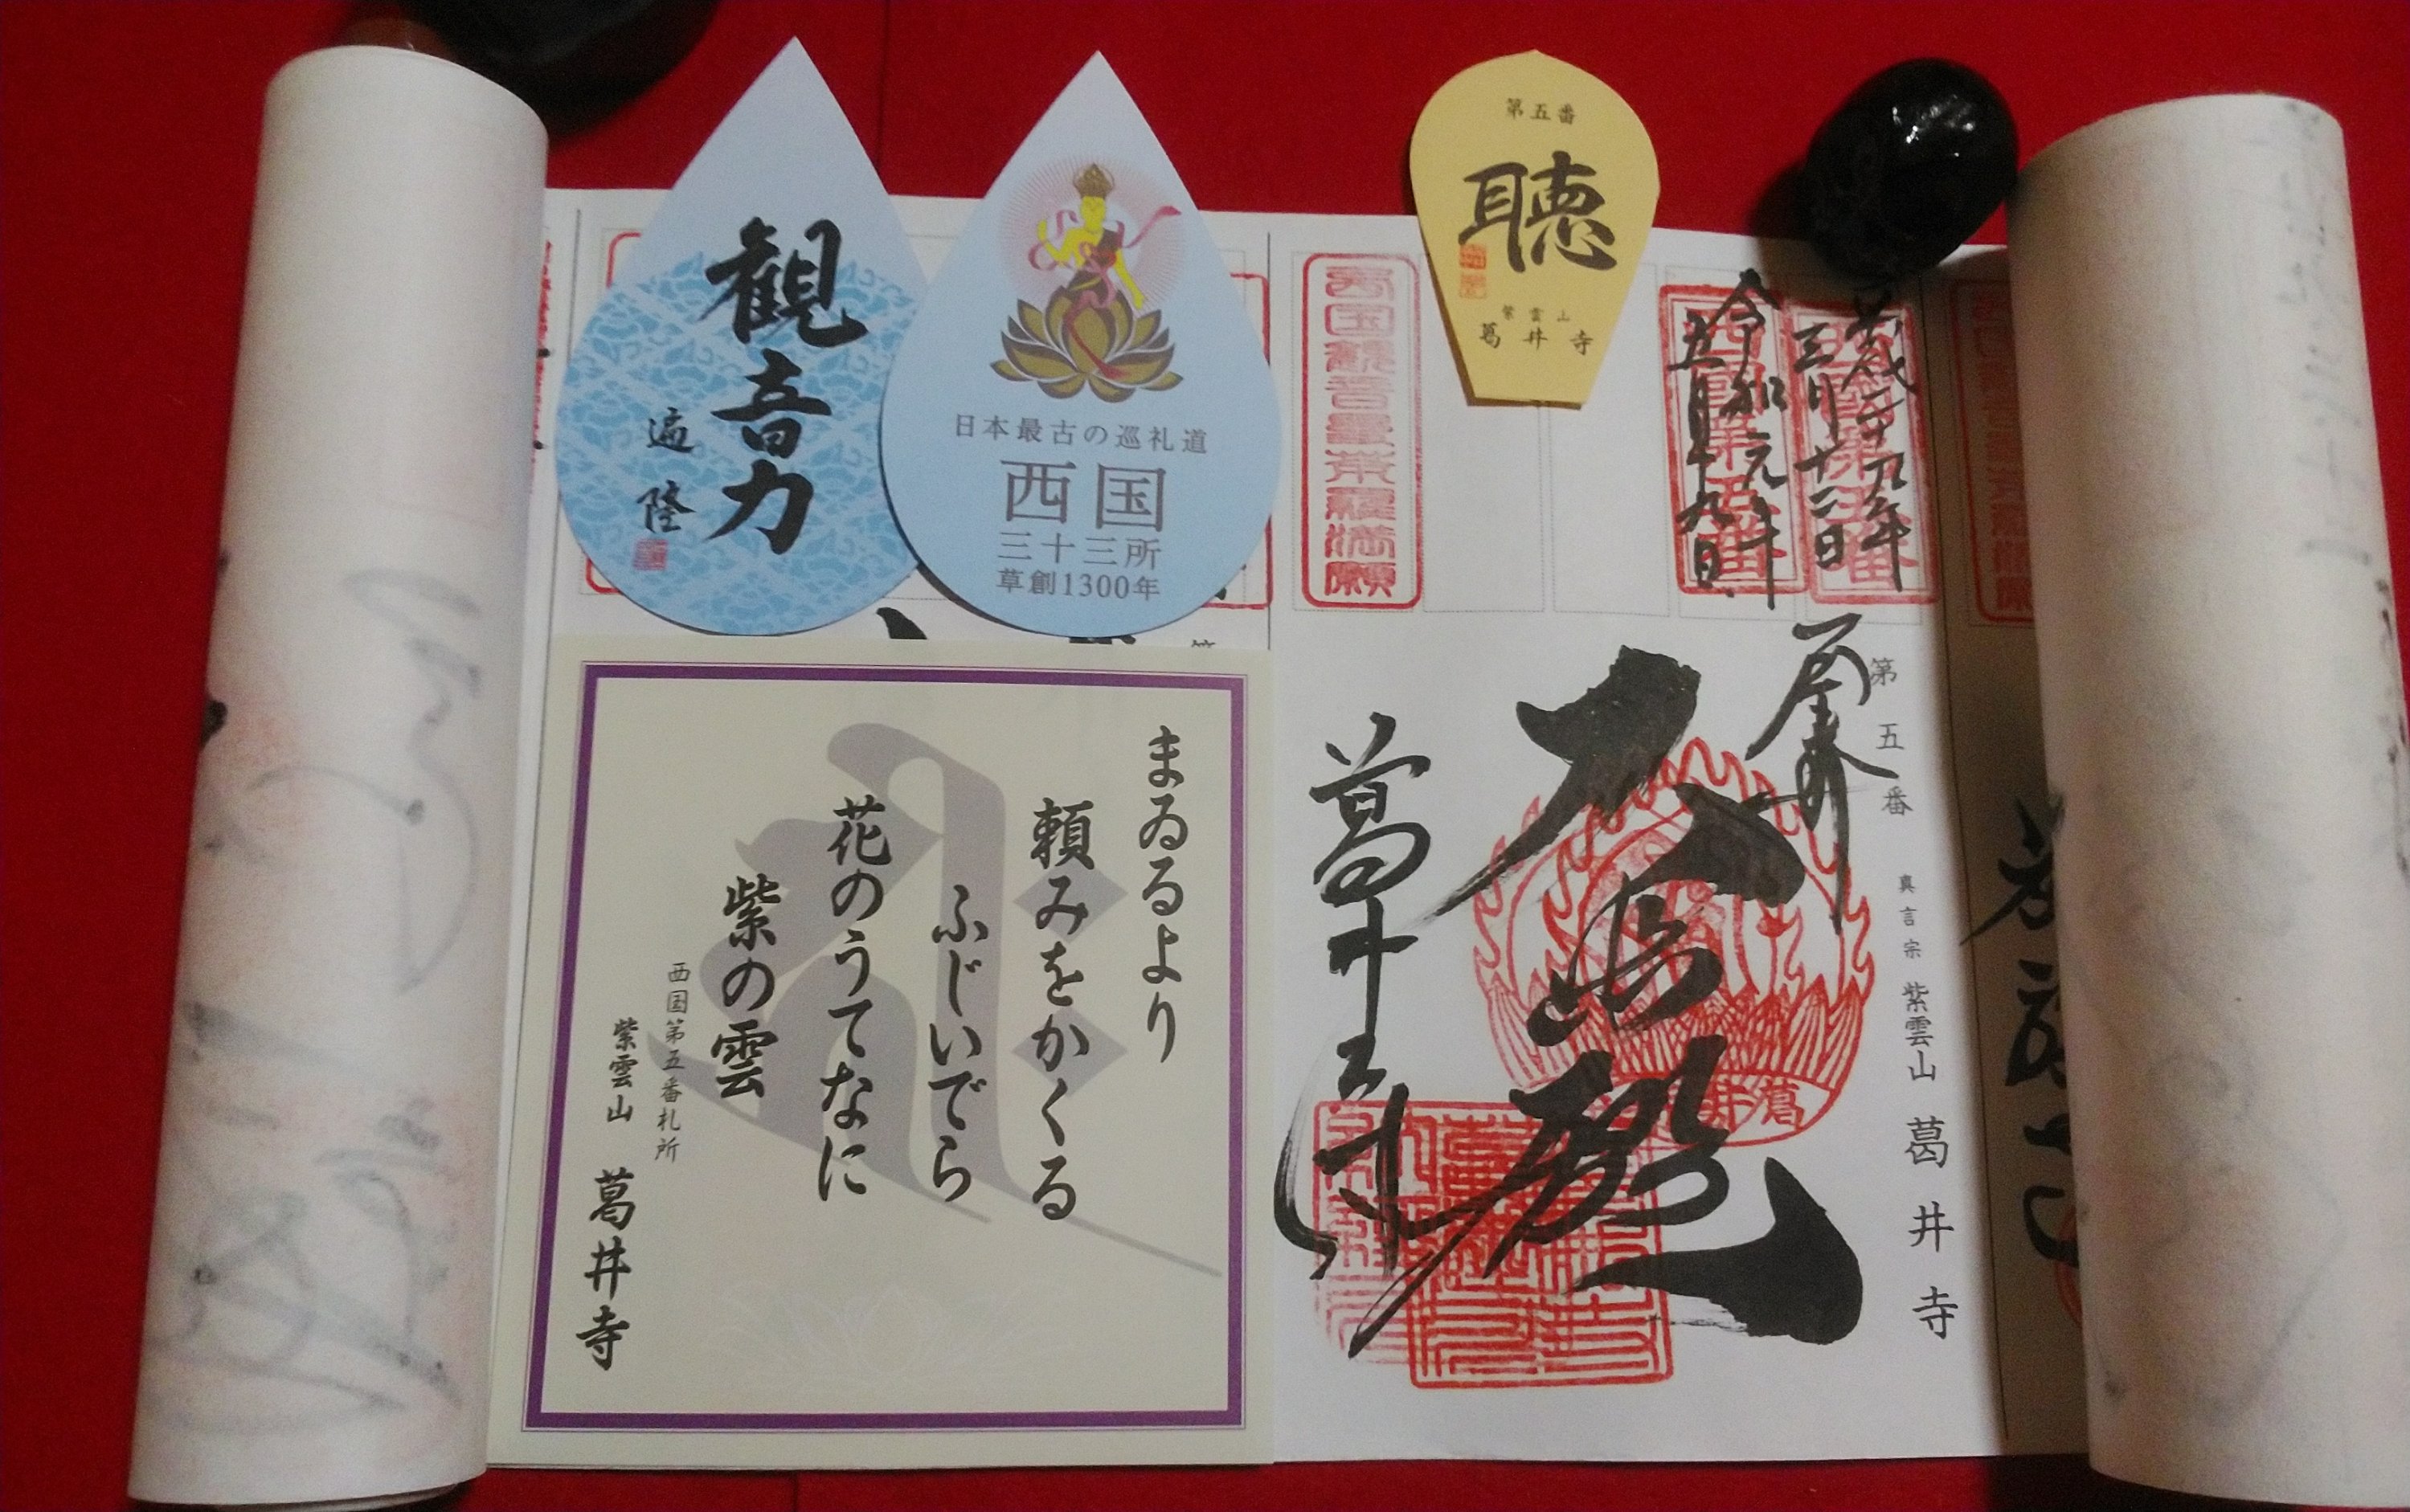 観音力
遍隆
日本最古の巡礼道
西国
三十三所
草創1300年
第五番
聴
紫雲山
葛井寺
まゐるより
頼みをかくる
ふじいでら
花のうてなに
紫の雲
西国第五番札所
紫雲山 葛井寺
西国観音曼荼羅満願
三月十二日
令和元年
五月十九日
奉拝
第五番 真言宗 紫雲山 葛井寺
大悲殿
葛井寺